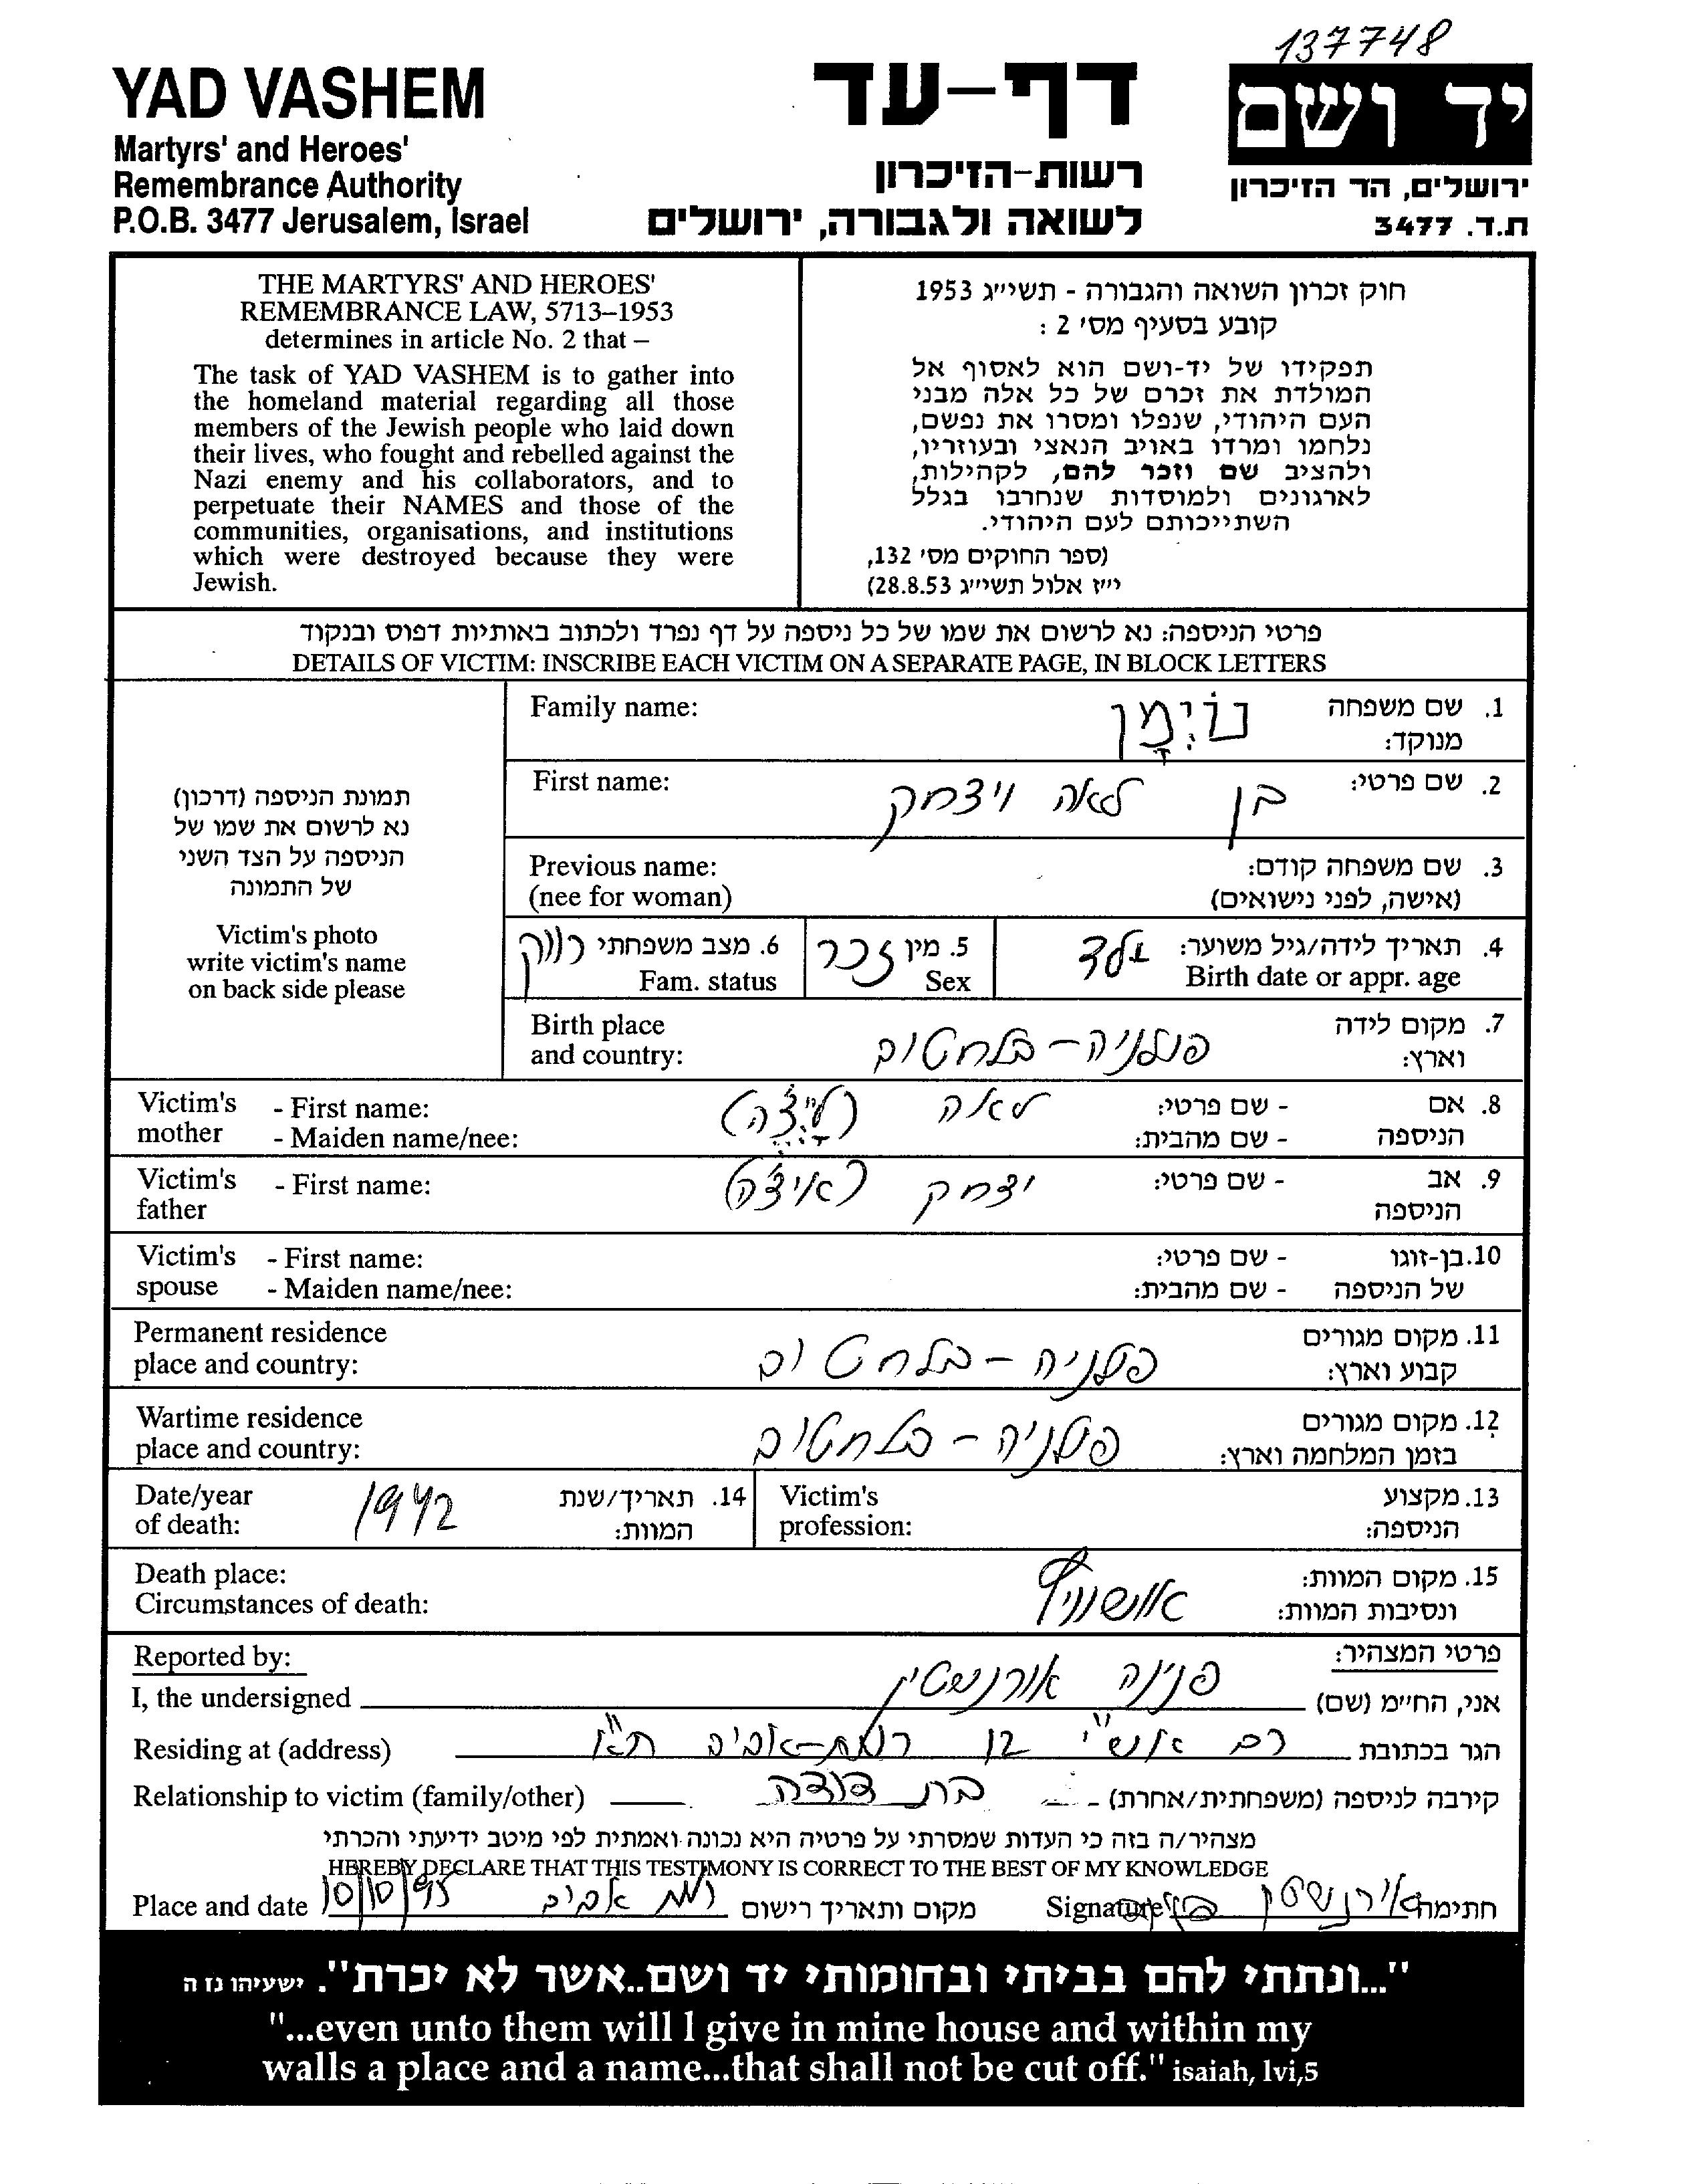 137748
YAD VASHEM
Martyrs' and Heroes'
Remembrance Authority
P.O.B. 3477 Jerusalem, Israel
דף-עד
רשות-הזיכרון
לשואה ולגבורה, ירושלים
יד ושם
ירושלים, הר הזיכרון
ת.ד. 3477
THE MARTYRS' AND HEROES'
REMEMBRANCE LAW, 5713–1953
determines in article No. 2 that –
The task of YAD VASHEM is to gather into
the homeland material regarding all those
members of the Jewish people who laid down
their lives, who fought and rebelled against the
Nazi enemy and his collaborators, and to
perpetuate their NAMES and those of the
communities, organisations, and institutions
which were destroyed because they were
Jewish.
חוק זכרון השואה והגבורה - תשי״ג 1953
קובע בסעיף מס׳ 2 :
תפקידו של יד-ושם הוא לאסוף אל
המולדת את זכרם של כל אלה מבני
העם היהודי, שנפלו ומסרו את נפשם,
נלחמו ומרדו באויב הנאצי ובעוזריו,
ולהציב שם וזכר להם, לקהילות,
לארגונים ולמוסדות שנחרבו בגלל
השתייכותם לעם היהודי.
(ספר החוקים מס׳ 132,
י״ז אלול תשי״ג 28.8.53)
פרטי הניספה: נא לרשום את שמו של כל ניספה על דף נפרד ולכתוב באותיות דפוס ובנקוד
DETAILS OF VICTIM: INSCRIBE EACH VICTIM ON A SEPARATE PAGE, IN BLOCK LETTERS
תמונת הניספה (דרכון)
נא לרשום את שמו של
הניספה על הצד השני
של התמונה
Victim's photo
write victim's name
on back side please
Family name: נוֹיְמָן 1. שם משפחה
מנוקד:
First name: בן לאה ויצחק 2. שם פרטי:
Previous name: 3. שם משפחה קודם:
(nee for woman) (אישה, לפני נישואים)
4. תאריך לידה/גיל משוער: ילד
Birth date or appr. age
5. מין זכר
Sex
6. מצב משפחתי רווק
Fam. status
Birth place 7. מקום לידה
and country: פולניה-בלחטוב וארץ:
Victim's - First name: לאה (לַיְצֶ׳ה) - שם פרטי: 8. אם
mother - Maiden name/nee: - שם מהבית: הניספה
Victim's - First name: יצחק (איצ׳ה) - שם פרטי: 9. אב
father הניספה
Victim's - First name: - שם פרטי: 10. בן-זוגו
spouse - Maiden name/nee: - שם מהבית: של הניספה
Permanent residence 11. מקום מגורים
place and country: פולניה - בלחטוב קבוע וארץ:
Wartime residence 12. מקום מגורים
place and country: פולניה - בלחטוב בזמן המלחמה וארץ:
Date/year 1942 14. תאריך/שנת
of death: המוות:
Victim's 13. מקצוע
profession: הניספה:
Death place: אושוויץ 15. מקום המוות:
Circumstances of death: ונסיבות המוות:
Reported by: פרטי המצהיר:
I, the undersigned פנינה אורנשטין אני, החי״מ (שם)
Residing at (address) רב אשי 12 רמת-אביב ת״א הגר בכתובת
Relationship to victim (family/other) בת דודה קירבה לניספה (משפחתית/אחרת)
מצהיר/ה בזה כי העדות שמסרתי על פרטיה היא נכונה ואמתית לפי מיטב ידיעתי והכרתי
HEREBY DECLARE THAT THIS TESTIMONY IS CORRECT TO THE BEST OF MY KNOWLEDGE
Place and date 10/10/95 רמת אביב מקום ותאריך רישום Signature פנינה אורנשטין חתימה
"...ונתתי להם בביתי ובחומותי יד ושם..אשר לא יכרת". ישעיהו נו ה
"...even unto them will I give in mine house and within my
walls a place and a name...that shall not be cut off." isaiah, lvi,5